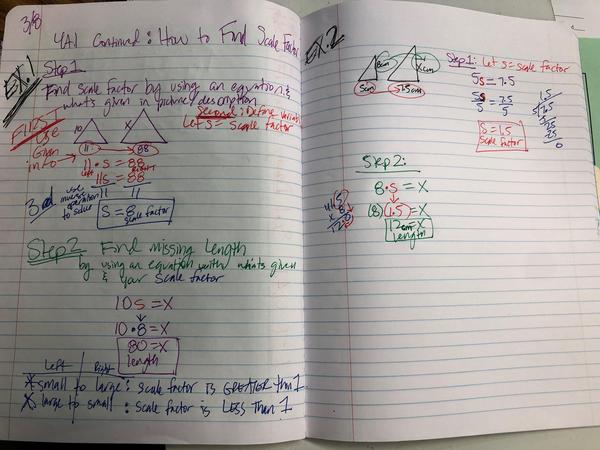 3/8
4A1 Continued: How to Find Scale Factor
EX. 1
Step 1
Find scale factor by using an equation &
what's given in picture/description
FIRST
Use
Given
info
10
X
11
88
Second: Define variable
Let S = Scale factor
11 · S = 88
left
right
11S = 88
11 11
3rd
use
inverse
operation
to solve
S = 8
scale factor
Step 2 Find missing length
by using an equation with what's given
& your scale factor
10s = X
10 · 8 = X
80 = X
length
Left Right
* small to large: scale factor is GREATER than 1
* large to small: scale factor is LESS THAN 1
EX. 2
8cm
X cm
5cm
7.5cm
Step 1: Let s = scale factor
5s = 7.5
5s = 7.5
5 5
S = 1.5
scale factor
1.5
5 7.5
5
25
25
0
Step 2:
8 · s = X
(8)(1.5) = X
12cm = X
length
1.5
x 8
12.0